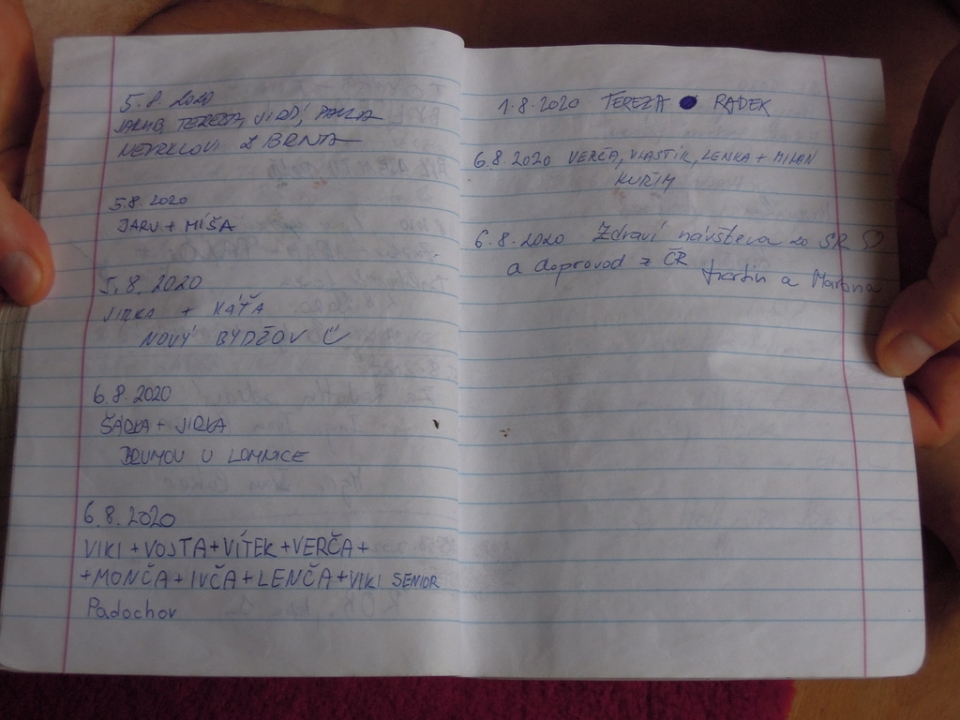 5.8.2020
JAKUB, TEREZA, JIŘÍ, PAVLA
NEVRKLOVI Z BRNA
5.8.2020
JARU + MÍŠA
5.8.2020
JIRKA + KÁŤA
NOVÝ BYDŽOV
6.8.2020
ŠÁRKA + JIRKA
U LOMNICE
6.8.2020
VIKI + VOJTA + VÍTEK + VERČA +
+ MONČA + IVČA + LENČA + VIKI SENIOR
Padochov
1.8.2020 TEREZA RADEK
6.8.2020 VERČA, VLASTÍK, LENKA + MILAN
KUŘIM
6.8.2020 Zdraví návšteva zo SR
a doprovod z ČR Martin a Martina